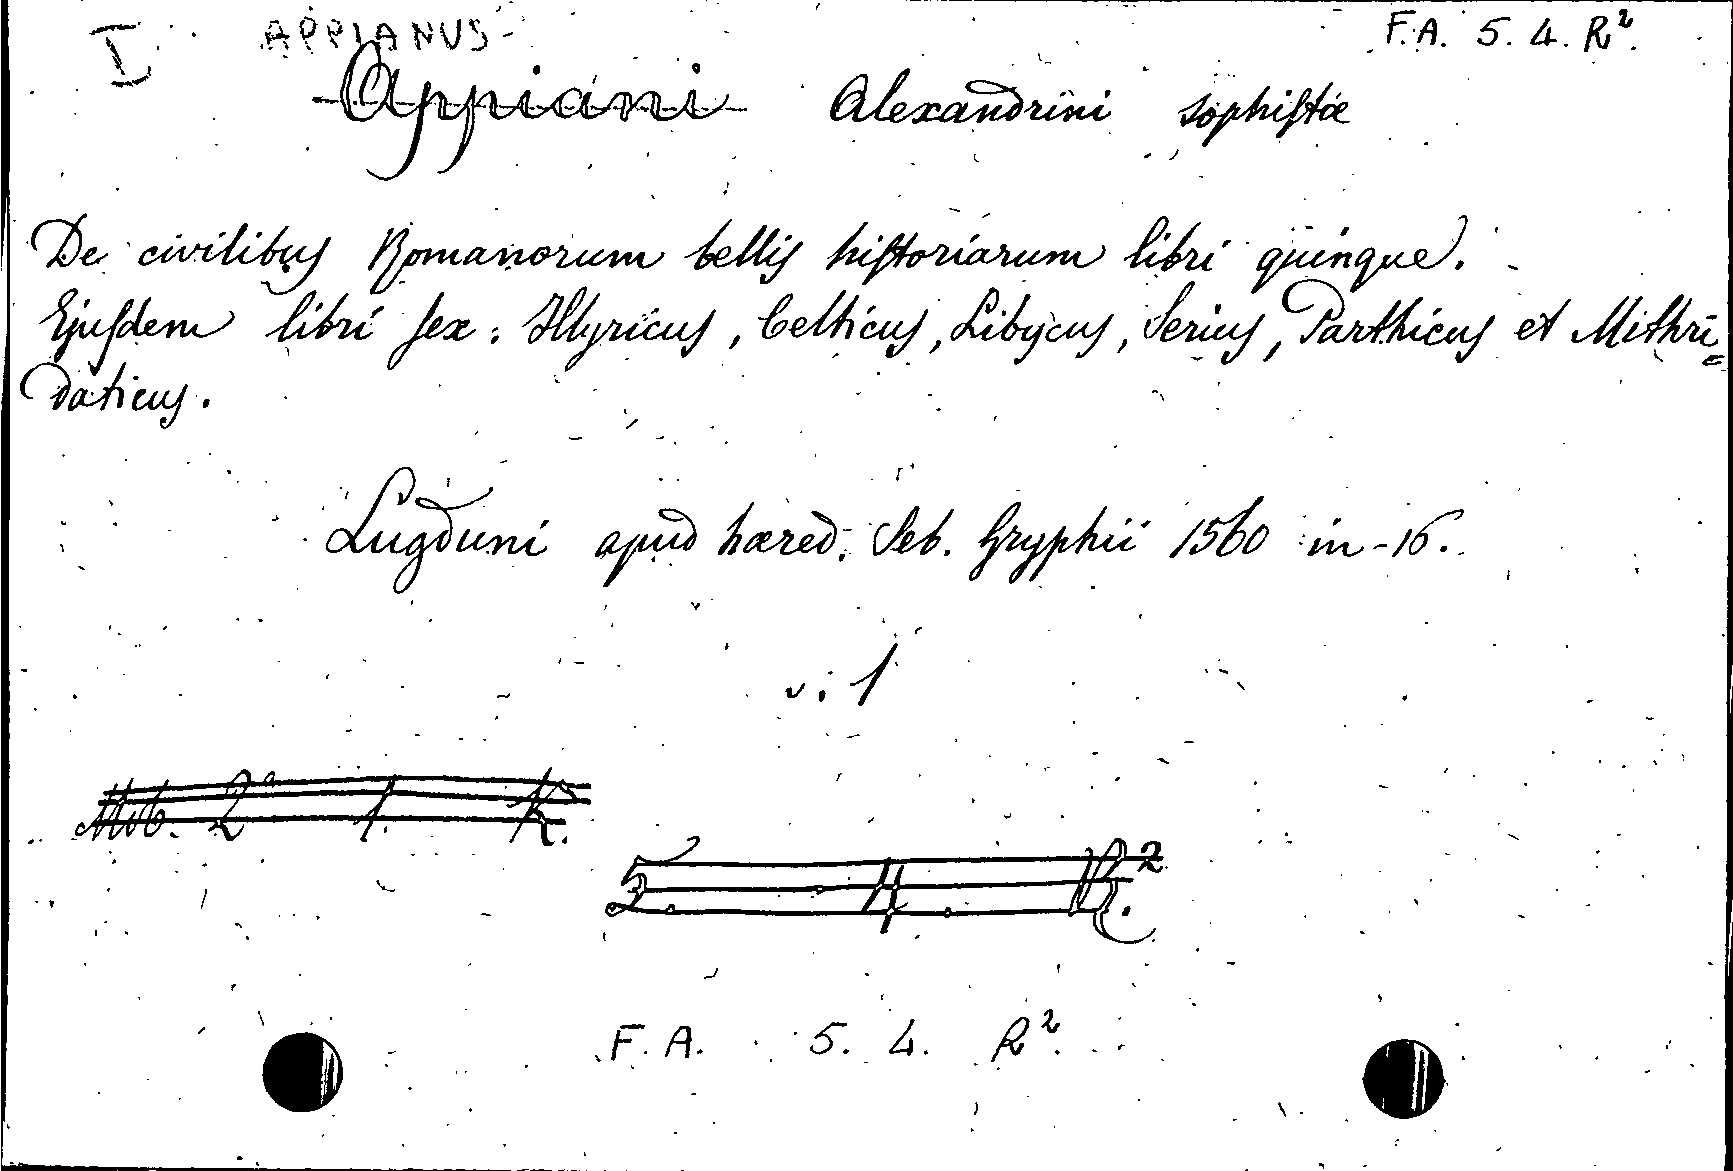 I APPIANUS F.A. 5. 4. R².
Appiani Alexandrini sophistæ
De civilibus Romanorum bellis historiarum libri quinque.
Ejusdem libri sex: Illyricus, Celticus, Libycus, Serius, Parthicus et Mithri=
daticus.
Lugduni apud hæred. Seb. Gryphii 1560 in-16.
v. 1
Mob. 2ª 1. K.
5. 4. R.²
F. A. 5. 4. R².